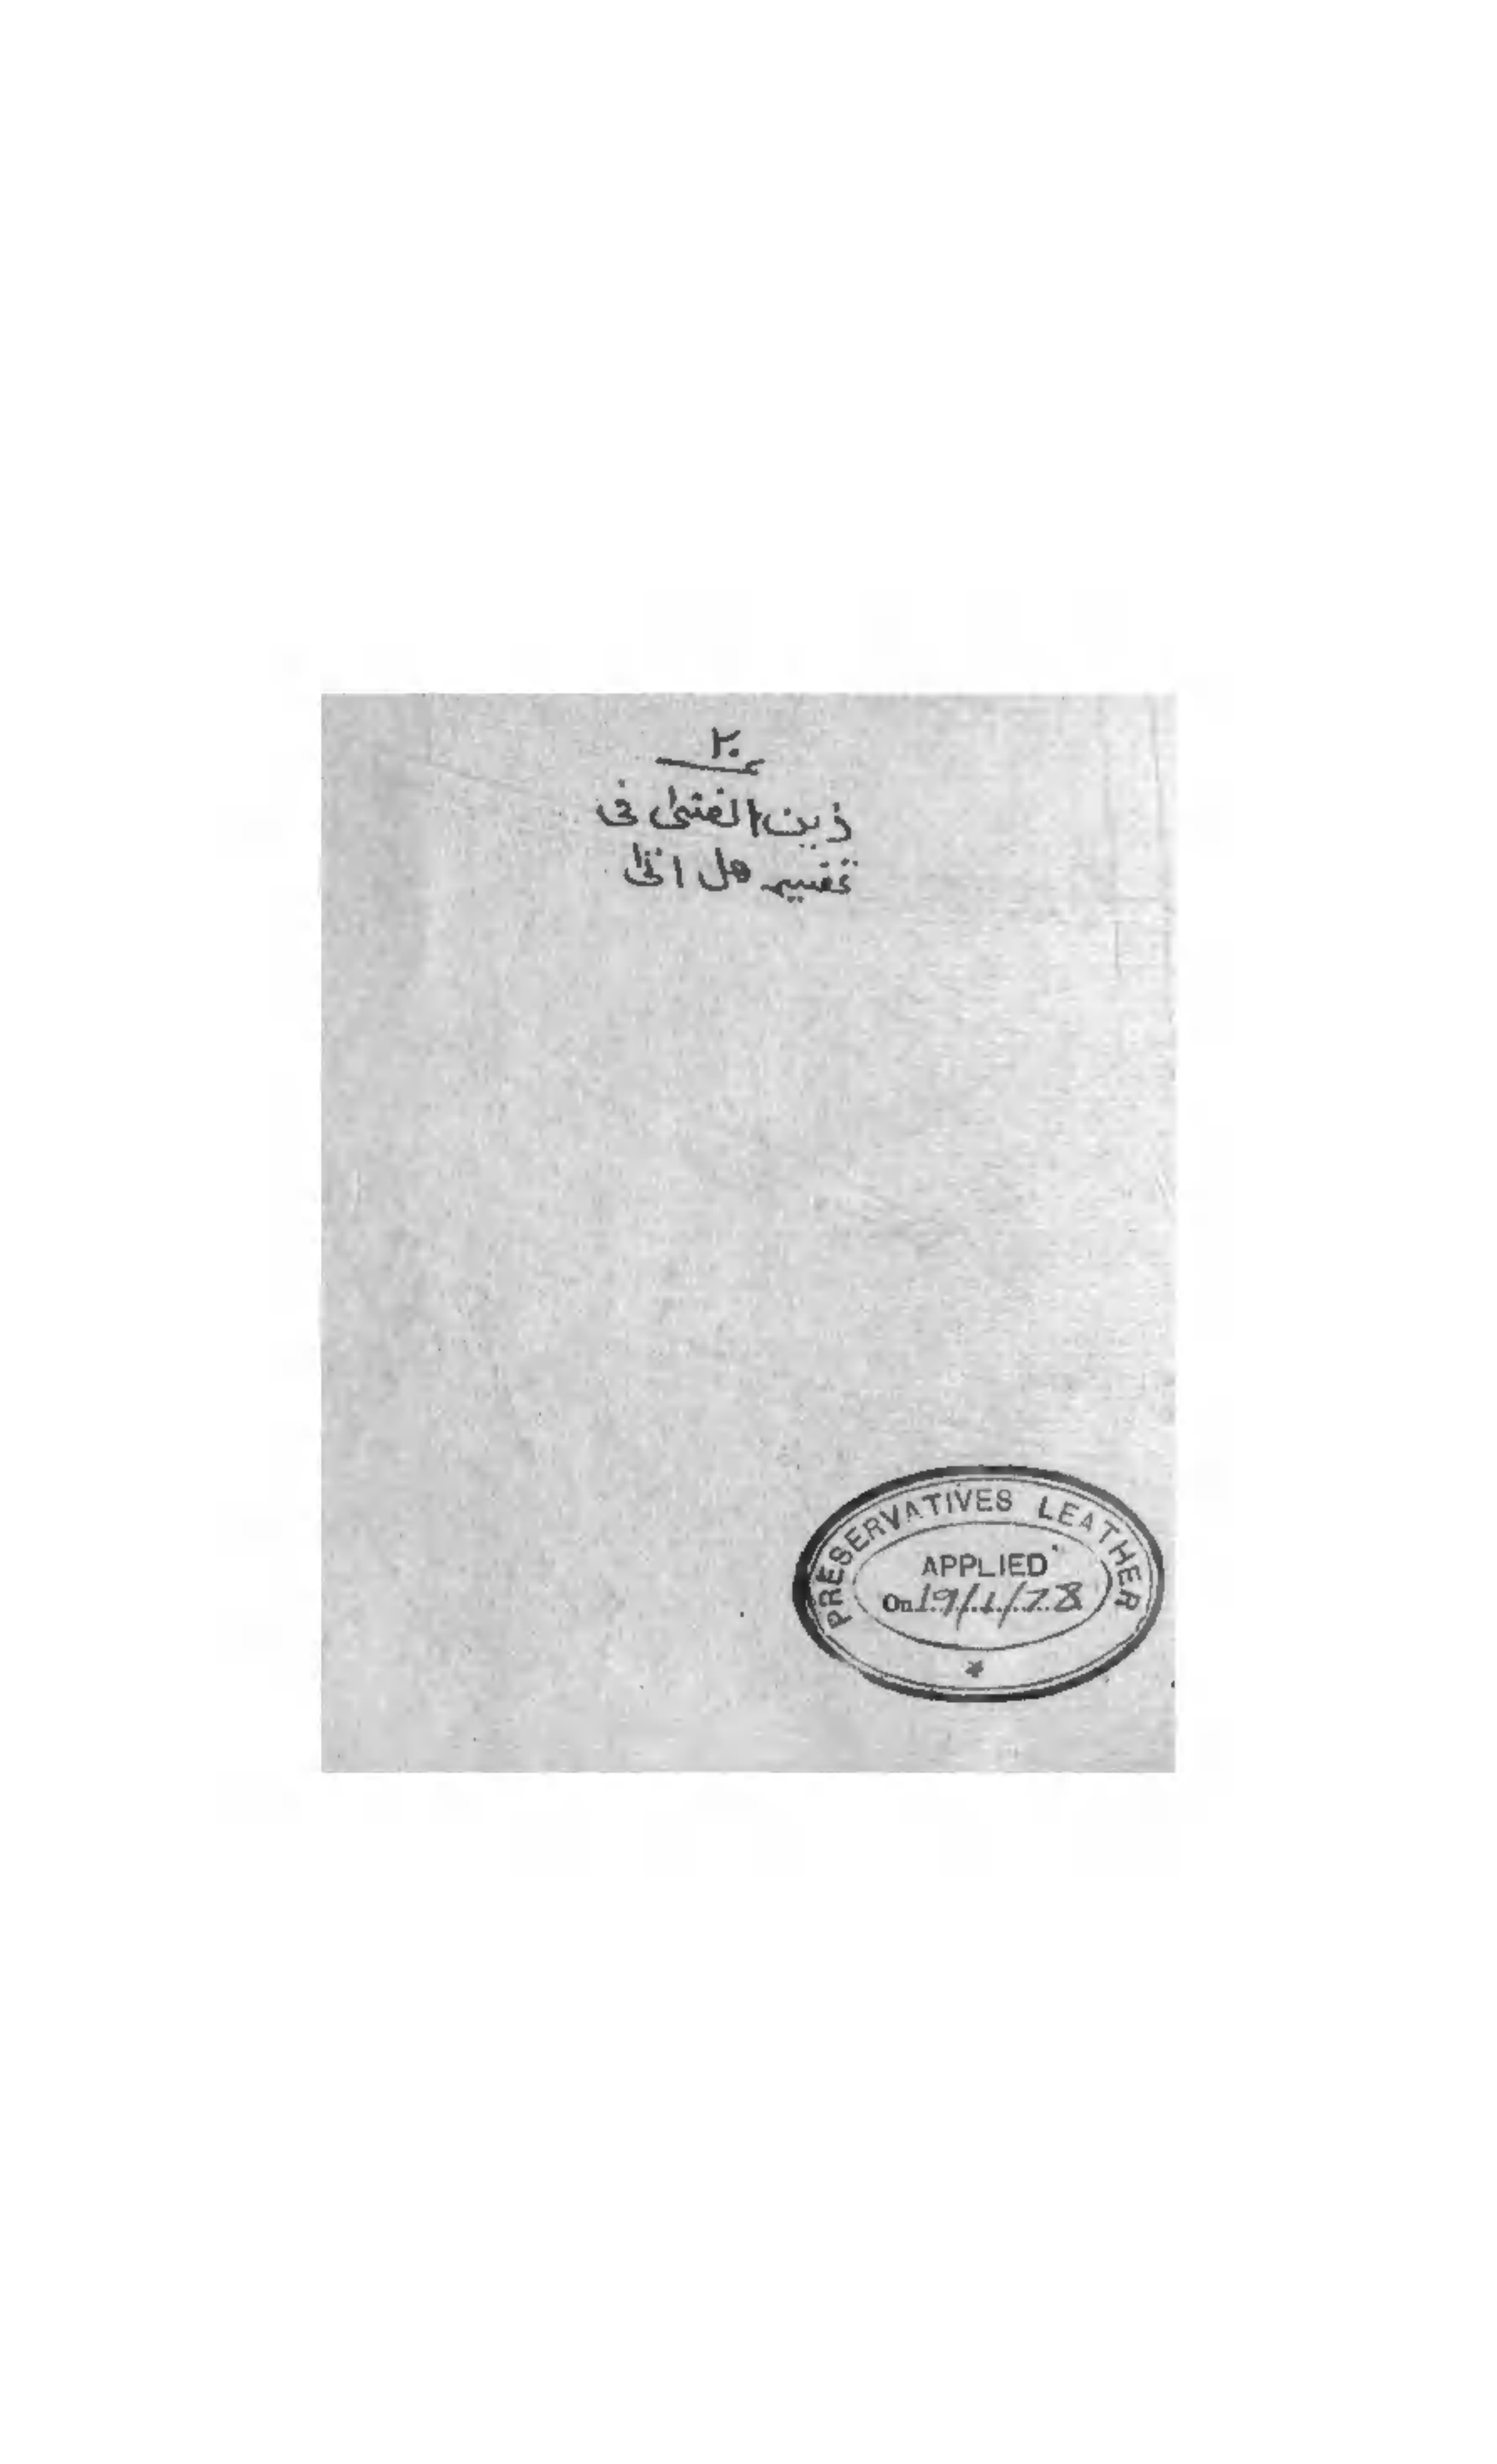 ٢٠
زين الفتىٰ فى
تفسير هل اتىٰ
PRESERVATIVES LEATHER
APPLIED
On 19/1/78
*